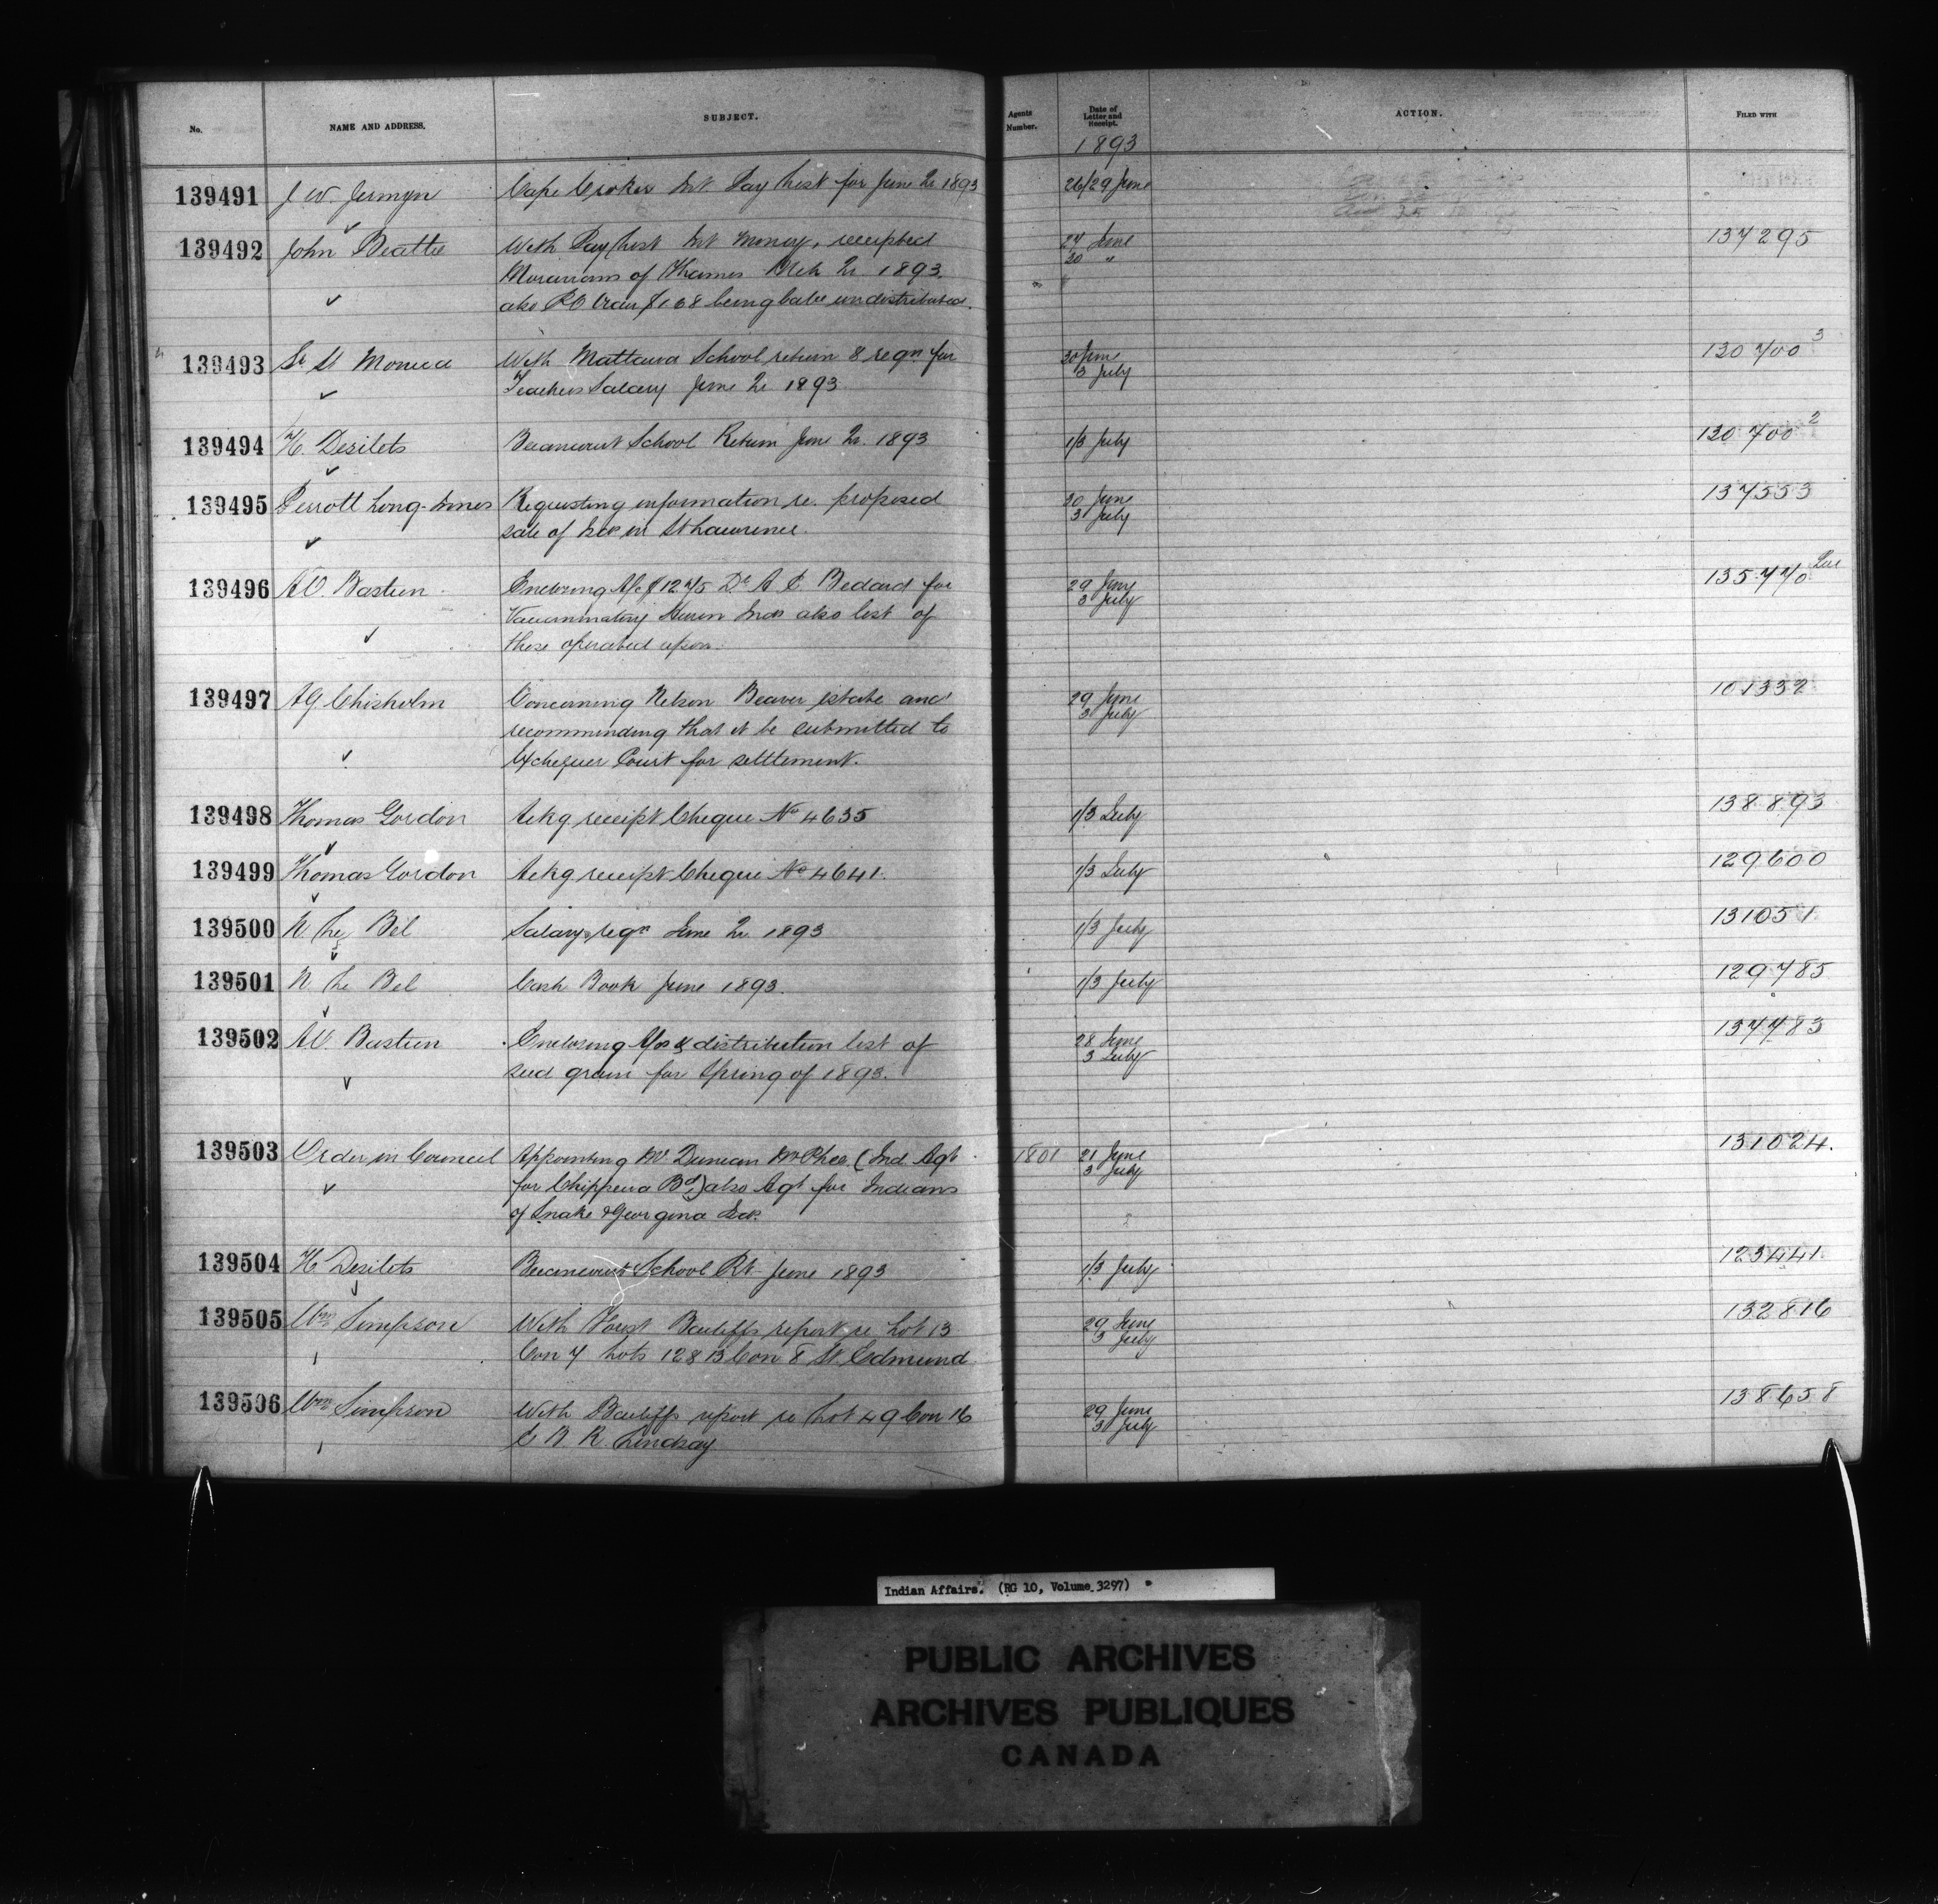 No. NAME AND ADDRESS. SUBJECT. Agents Number. Date of Letter and Receipt. ACTION. FILED WITH
1893
139491 J W. Jermyn Cape Croker Int Pay List for June Qr 1893 26/29 June
139492 John Beattie With Pay List Int Money, receipted 27 June 137295
Moravians of Thames Mch Qr 1893. 30 "
also P.O Order $1.08 being balce undistributed.
139493 Sr St Monica With Mattawa School return & reqn for 30 June 130700 3
Teachers Salary June Qr 1893 3 July
139494 H. Desilets Becancourt School Return June Qr. 1893 1/3 July 130700 2
139495 Perrott Long-Innes Requesting information re. proposed 30 June 137553
sale of Isds in St Lawrence. 3 July
139496 A.O. Bastien Enclosing A/c $12.75 Dr A. C. Bedard for 29 June 135770
Vaccinating Huron Inds also list of 3 July
those operated upon.
139497 A G Chisholm Concerning Nelson Beaver estate and 29 June 101332
recommending that it be submitted to 3 July
Exchequer Court for settlement.
139498 Thomas Gordon Ackg receipt Cheque No 4635 1/3 July 138893
139499 Thomas Gordon Ackg receipt Cheque No 4641. 1/3 July 129600
139500 N. Le Bel Salary reqn June Qr 1893 1/3 July 131051
139501 N. Le Bel Cash Book June 1893. 1/3 July 129785
139502 A.O. Bastien Enclosing A/cs & distribution list of 28 June 137783
seed grain for Spring of 1893. 3 July
139503 Order in Council Appointing Mr Duncan McPhee (Ind. Agt 1801 21 June 131024.
for Chippewa Bd) also Agt for Indians 3 July
of Snake & Georgina Isds.
139504 H Desilets Becancourt School Rt June 1893 1/3 July 123441
139505 Wm Simpson With Forest Bailiffs report re Lot 13 29 June 132816
Con 7 Lots 12 & 13 Con 8 St. Edmund 3 July
139506 Wm Simpson With Bailiffs report re Lot 49 Con 16 29 June 138658
E B R Lindsay 3 July
Indian Affairs. (RG 10, Volume 3297)
PUBLIC ARCHIVES
ARCHIVES PUBLIQUES
CANADA